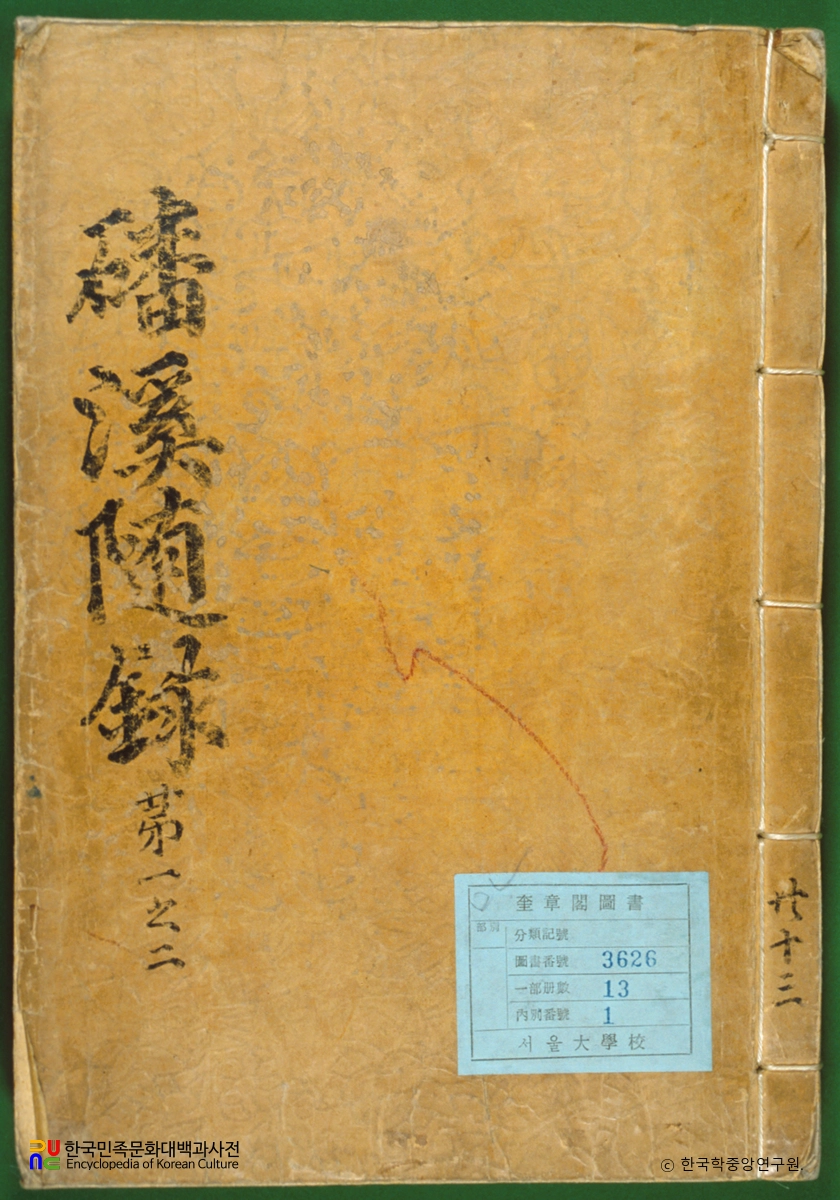 磻溪随録 苐一之二
共十三
奎章閣圖書
部別
分類記號
圖書番號 3626
一部册數 13
內別番號 1
서울大學校
한국민족문화대백과사전
Encyclopedia of Korean Culture
© 한국학중앙연구원.